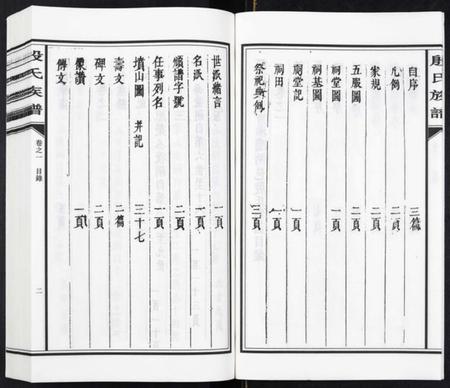 殷氏族譜
自序 三篇
凡例 二頁
家規 二頁
五服圖 二頁
祠堂圖 一頁
祠基圖 一頁
祠堂記 一頁
祠田 一頁
祭祀典例 三頁
世派緒言 一頁
名派 一頁
領譜字號 二頁
任事列名 一頁
墳山圖 并記 三十七
壽文 二篇
碑文 二頁
像讚 一頁
傳文
殷氏族譜
卷之一 目錄
二